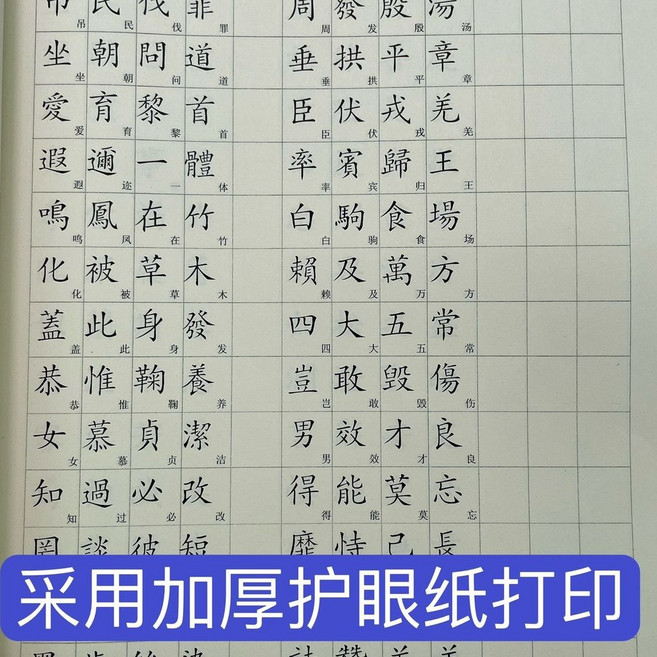 吊民伐罪 周發殷湯
吊民伐罪 周发殷汤
坐朝問道 垂拱平章
坐朝问道 垂拱平章
愛育黎首 臣伏戎羌
爱育黎首 臣伏戎羌
遐邇一體 率賓歸王
遐迩一体 率宾归王
鳴鳳在竹 白駒食場
鸣凤在竹 白驹食场
化被草木 賴及萬方
化被草木 赖及万方
蓋此身發 四大五常
盖此身发 四大五常
恭惟鞠養 豈敢毀傷
恭惟鞠养 岂敢毁伤
女慕貞潔 男效才良
女慕贞洁 男效才良
知過必改 得能莫忘
知过必改 得能莫忘
罔談彼短 靡恃己長
采用加厚护眼纸打印